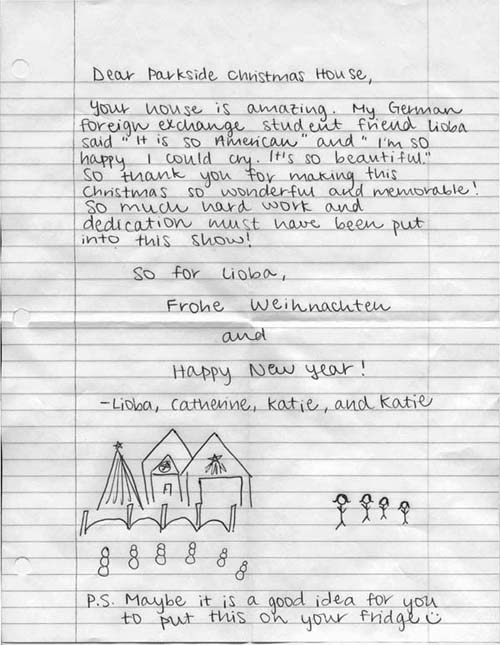 Dear Parkside Christmas House,
Your house is amazing. My German
foreign exchange student friend Lioba
said "It is so American" and "I'm so
happy I could cry. It's so beautiful."
So thank you for making this
Christmas so wonderful and memorable!
So much hard work and
dedication must have been put
into this show!
So for Lioba,
Frohe Weihnachten
and
Happy New year!
-Lioba, Catherine, Katie, and Katie
P.S. Maybe it is a good idea for you
to put this on your fridge